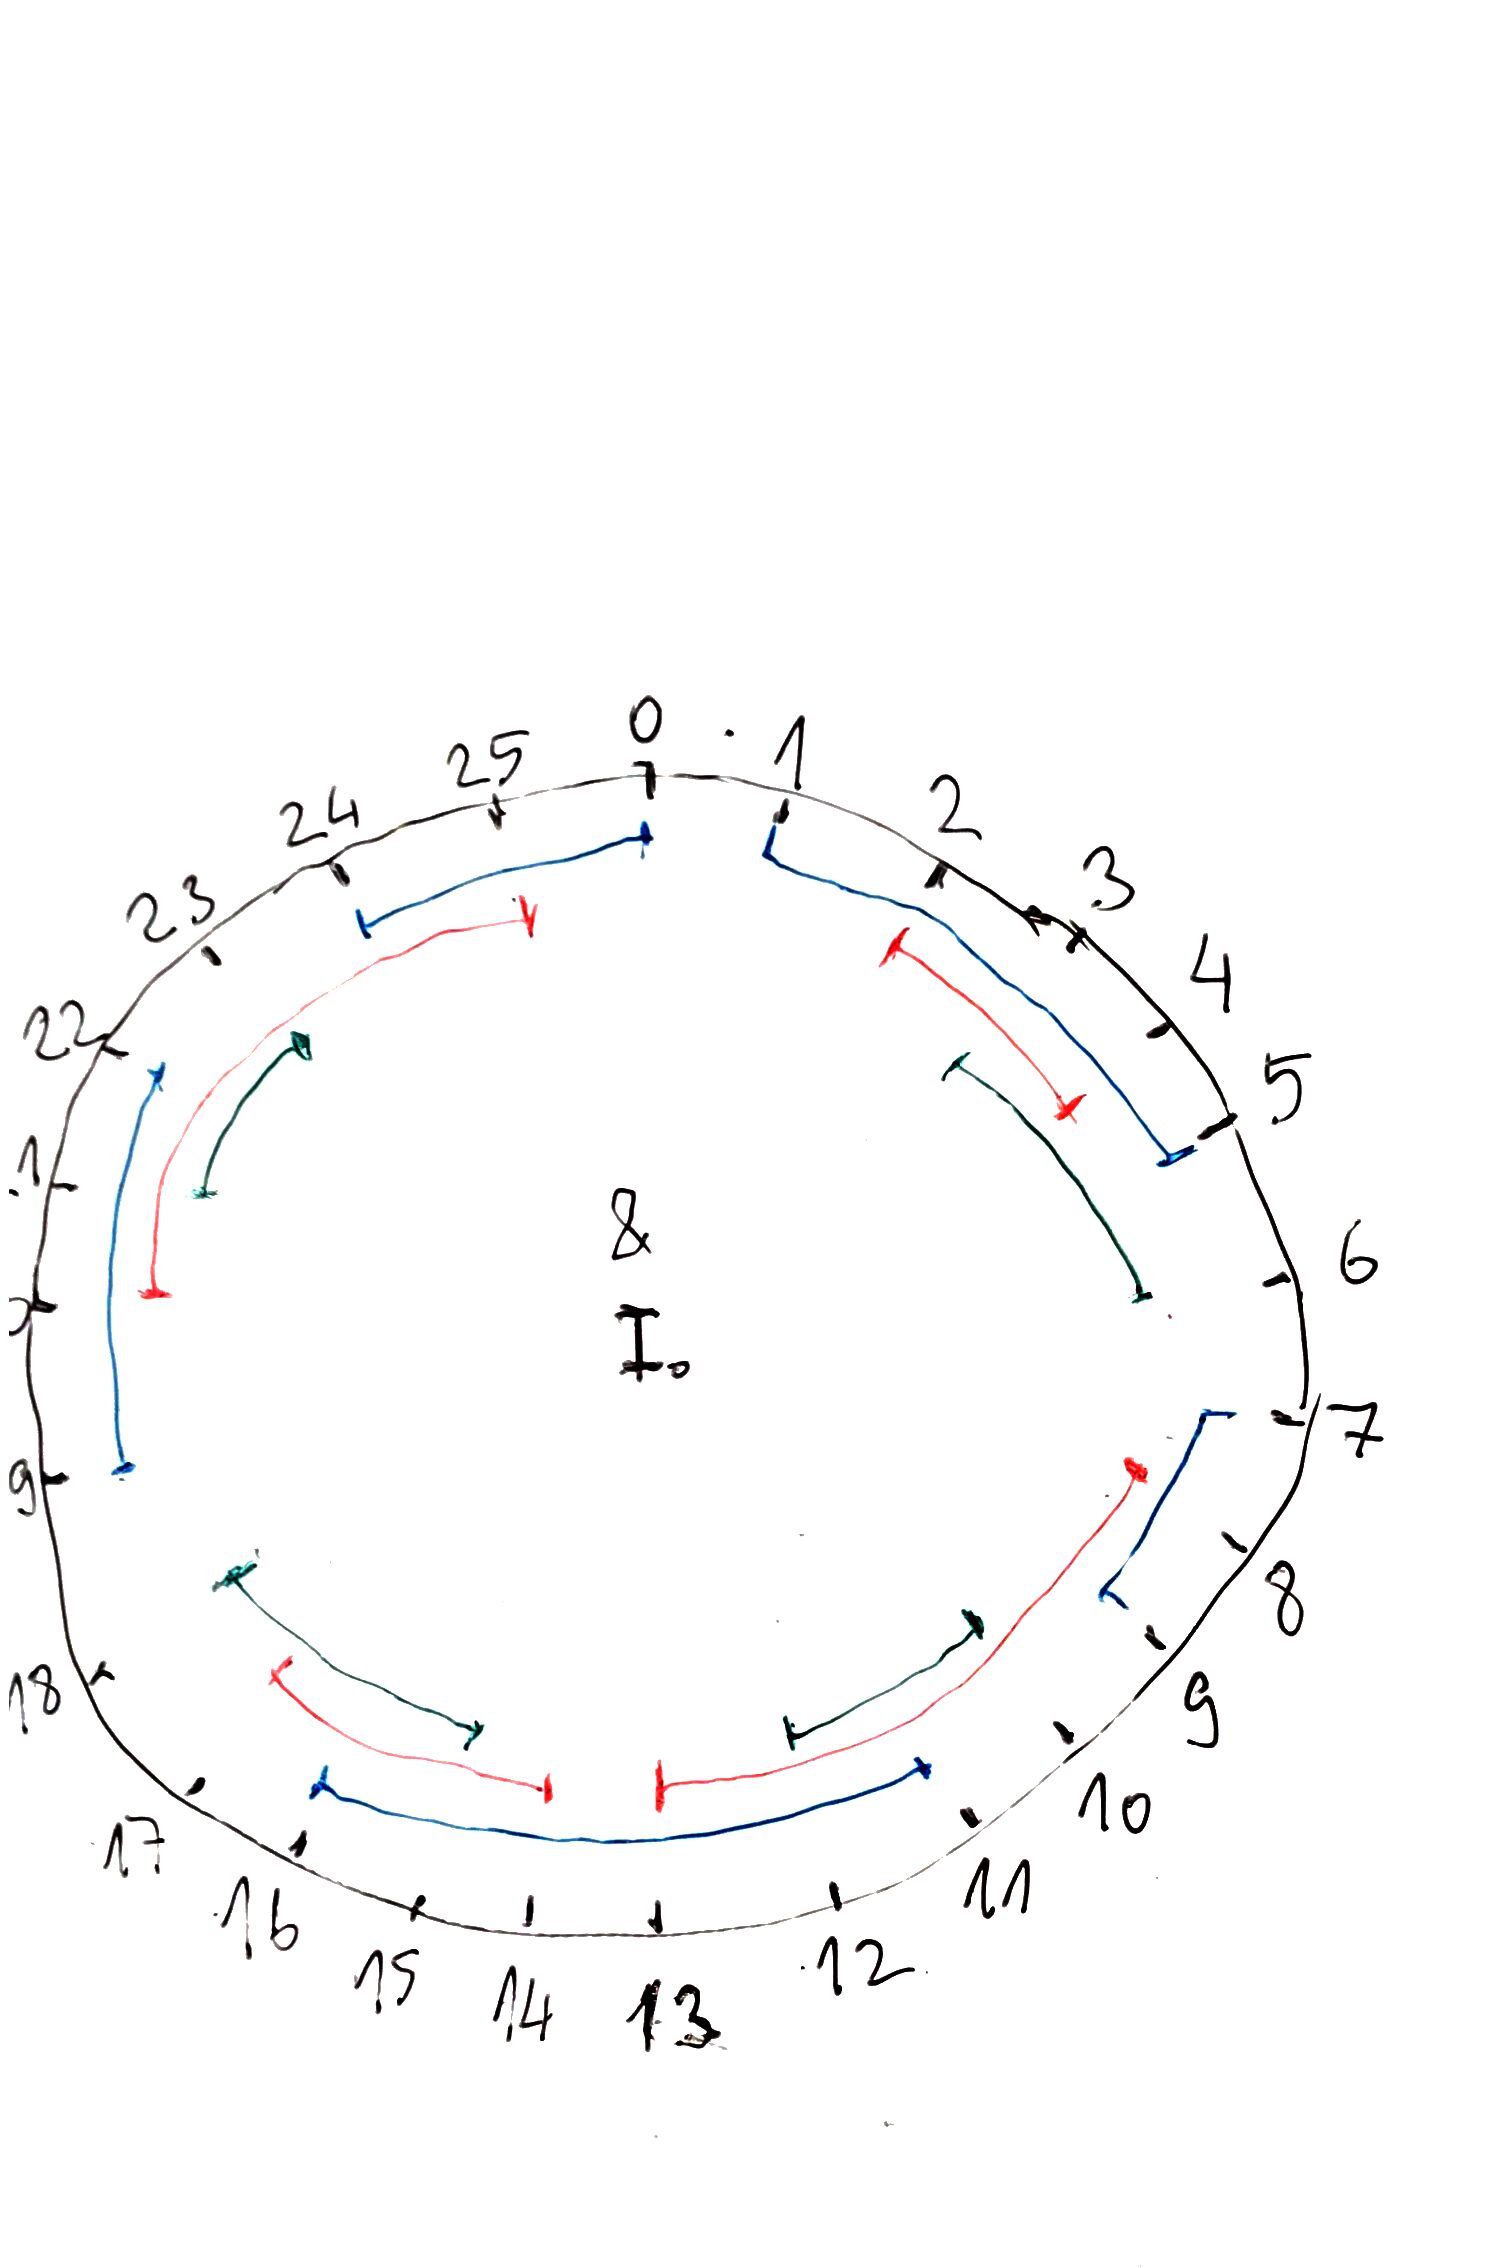 0
1
2
3
4
5
6
7
8
9
10
11
12
13
14
15
16
17
18
9
1
22
23
24
25
&
I.